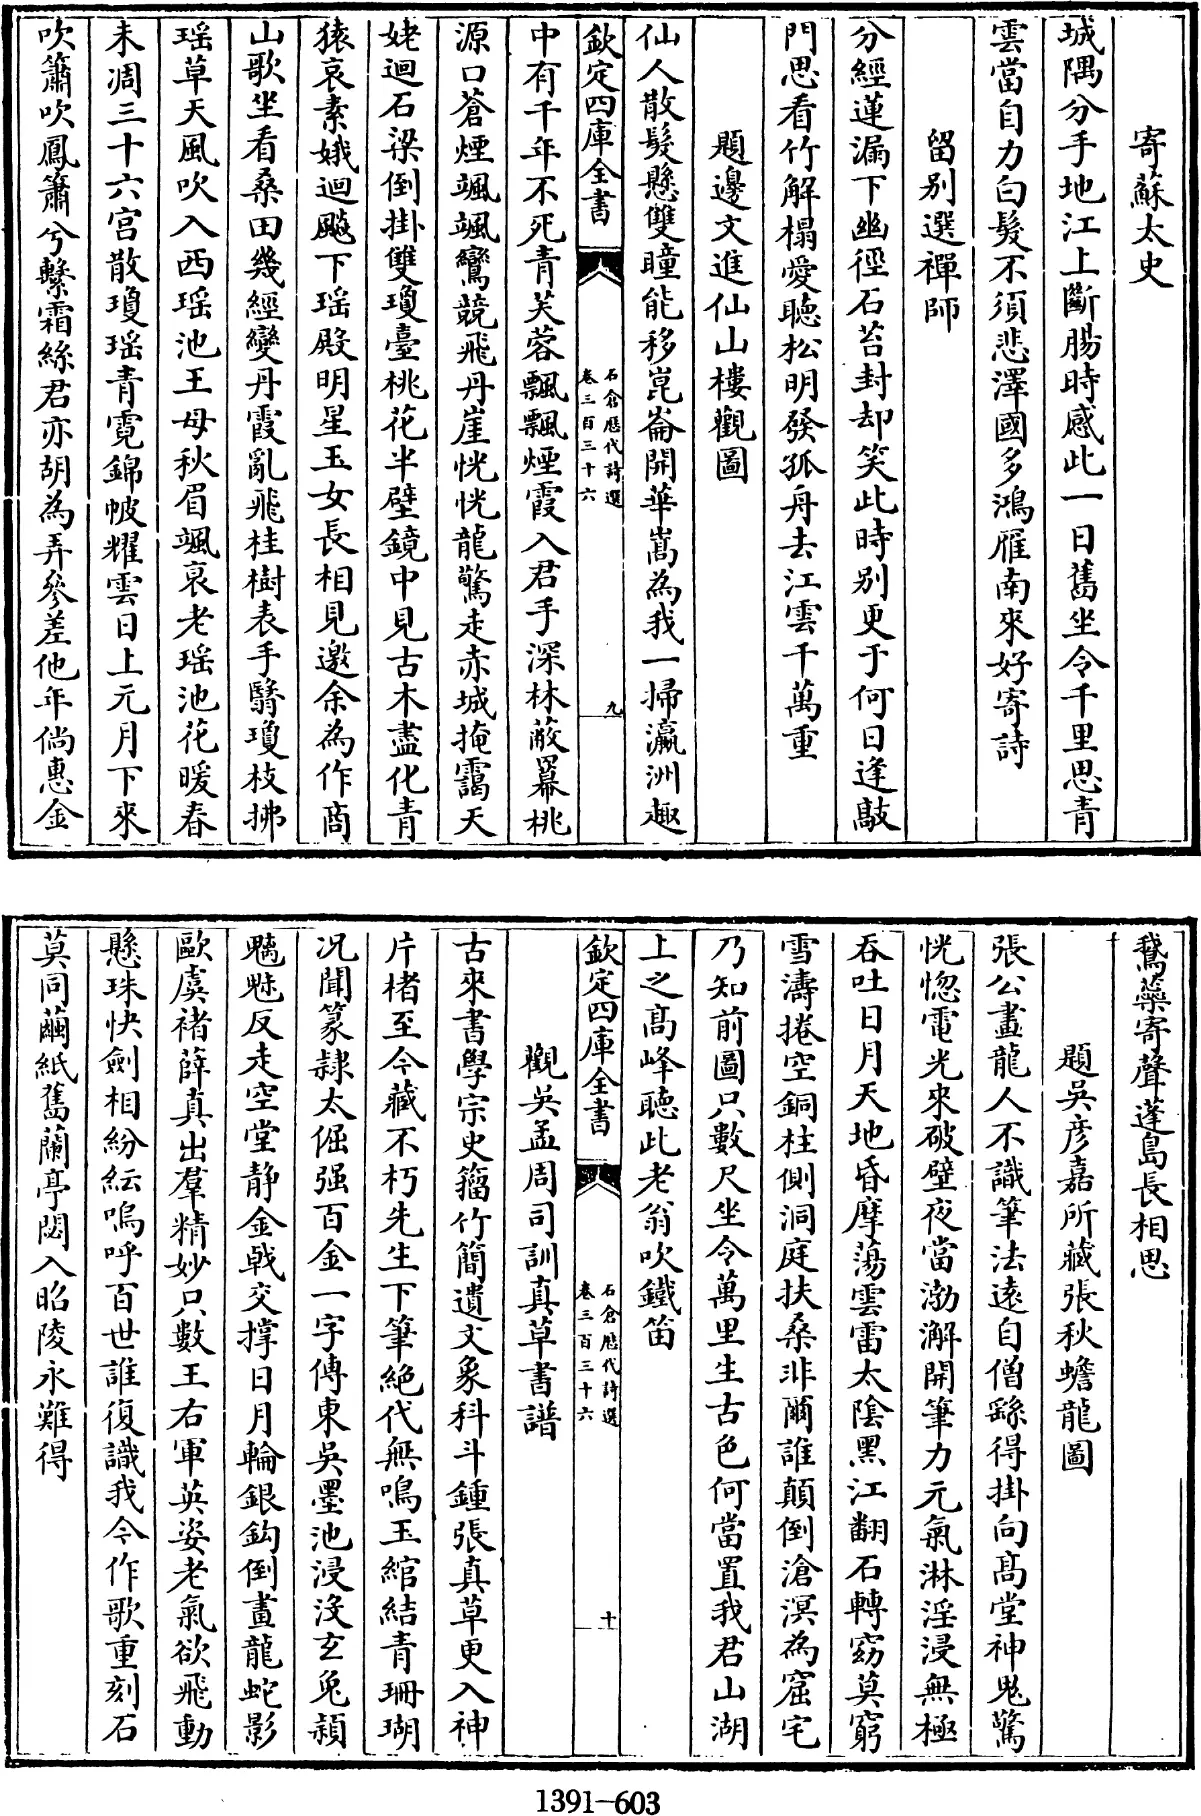 寄蘇太史
城隅分手地江上斷腸時感此一日舊坐令千里思青
雲當自力白髮不須悲澤國多鴻雁南來好寄詩
留別選禪師
分經蓮漏下幽徑石苔封却笑此時別更于何日逢敲
門思看竹解榻愛聽松明發孤舟去江雲千萬重
題邊文進仙山樓觀圖
仙人散髮懸雙瞳能移崑崙開華嵩為我一掃瀛洲趣
欽定四庫全書
石倉歷代詩選
卷三百三十六
九
中有千年不死青芙蓉飄飄煙霞入君手深林蔽羃桃
源口蒼煙颯颯鸞競飛丹崖恍恍龍驚走赤城掩靄天
姥迴石梁倒掛雙瓊臺桃花半壁鏡中見古木盡化青
猿哀素娥迴飈下瑶殿明星玉女長相見邀余為作商
山歌坐看桑田幾經變丹霞亂飛桂樹表手翳瓊枝拂
瑶草天風吹入西瑶池王母秋眉颯哀老瑶池花暖春
未凋三十六宫散瓊瑶青霓錦帔耀雲日上元月下來
吹簫吹鳳簫兮繫霜絲君亦胡為弄參差他年倘惠金
鵞蘂寄聲蓬島長相思
題吳彥嘉所藏張秋蟾龍圖
張公畫龍人不識筆法遠自僧繇得掛向髙堂神鬼驚
恍惚電光來破壁夜當渤澥開筆力元氣淋淫浸無極
吞吐日月天地昏摩蕩雲雷太陰黑江翻石轉窈莫窮
雪濤捲空銅柱側洞庭扶桑非爾誰顛倒滄溟為窟宅
乃知前圖只數尺坐令萬里生古色何當置我君山湖
上之髙峰聽此老翁吹鐵笛
欽定四庫全書
石倉歷代詩選
卷三百三十六
十
觀吳孟周司訓真草書譜
古來書學宗史籀竹簡遺文象科斗鍾張真草更入神
片楮至今藏不朽先生下筆絶代無鳴玉綰結青珊瑚
况聞篆隷太倔强百金一字傳東吳墨池浸沒玄兔穎
魑魅反走空堂静金戟交撑日月輪銀鈎倒畫龍蛇影
歐虞褚薛真出羣精妙只數王右軍英姿老氣欲飛動
懸珠快劍相紛紜嗚呼百世誰復識我今作歌重刻石
莫同繭紙舊蘭亭閟入昭陵永難得
1391-603